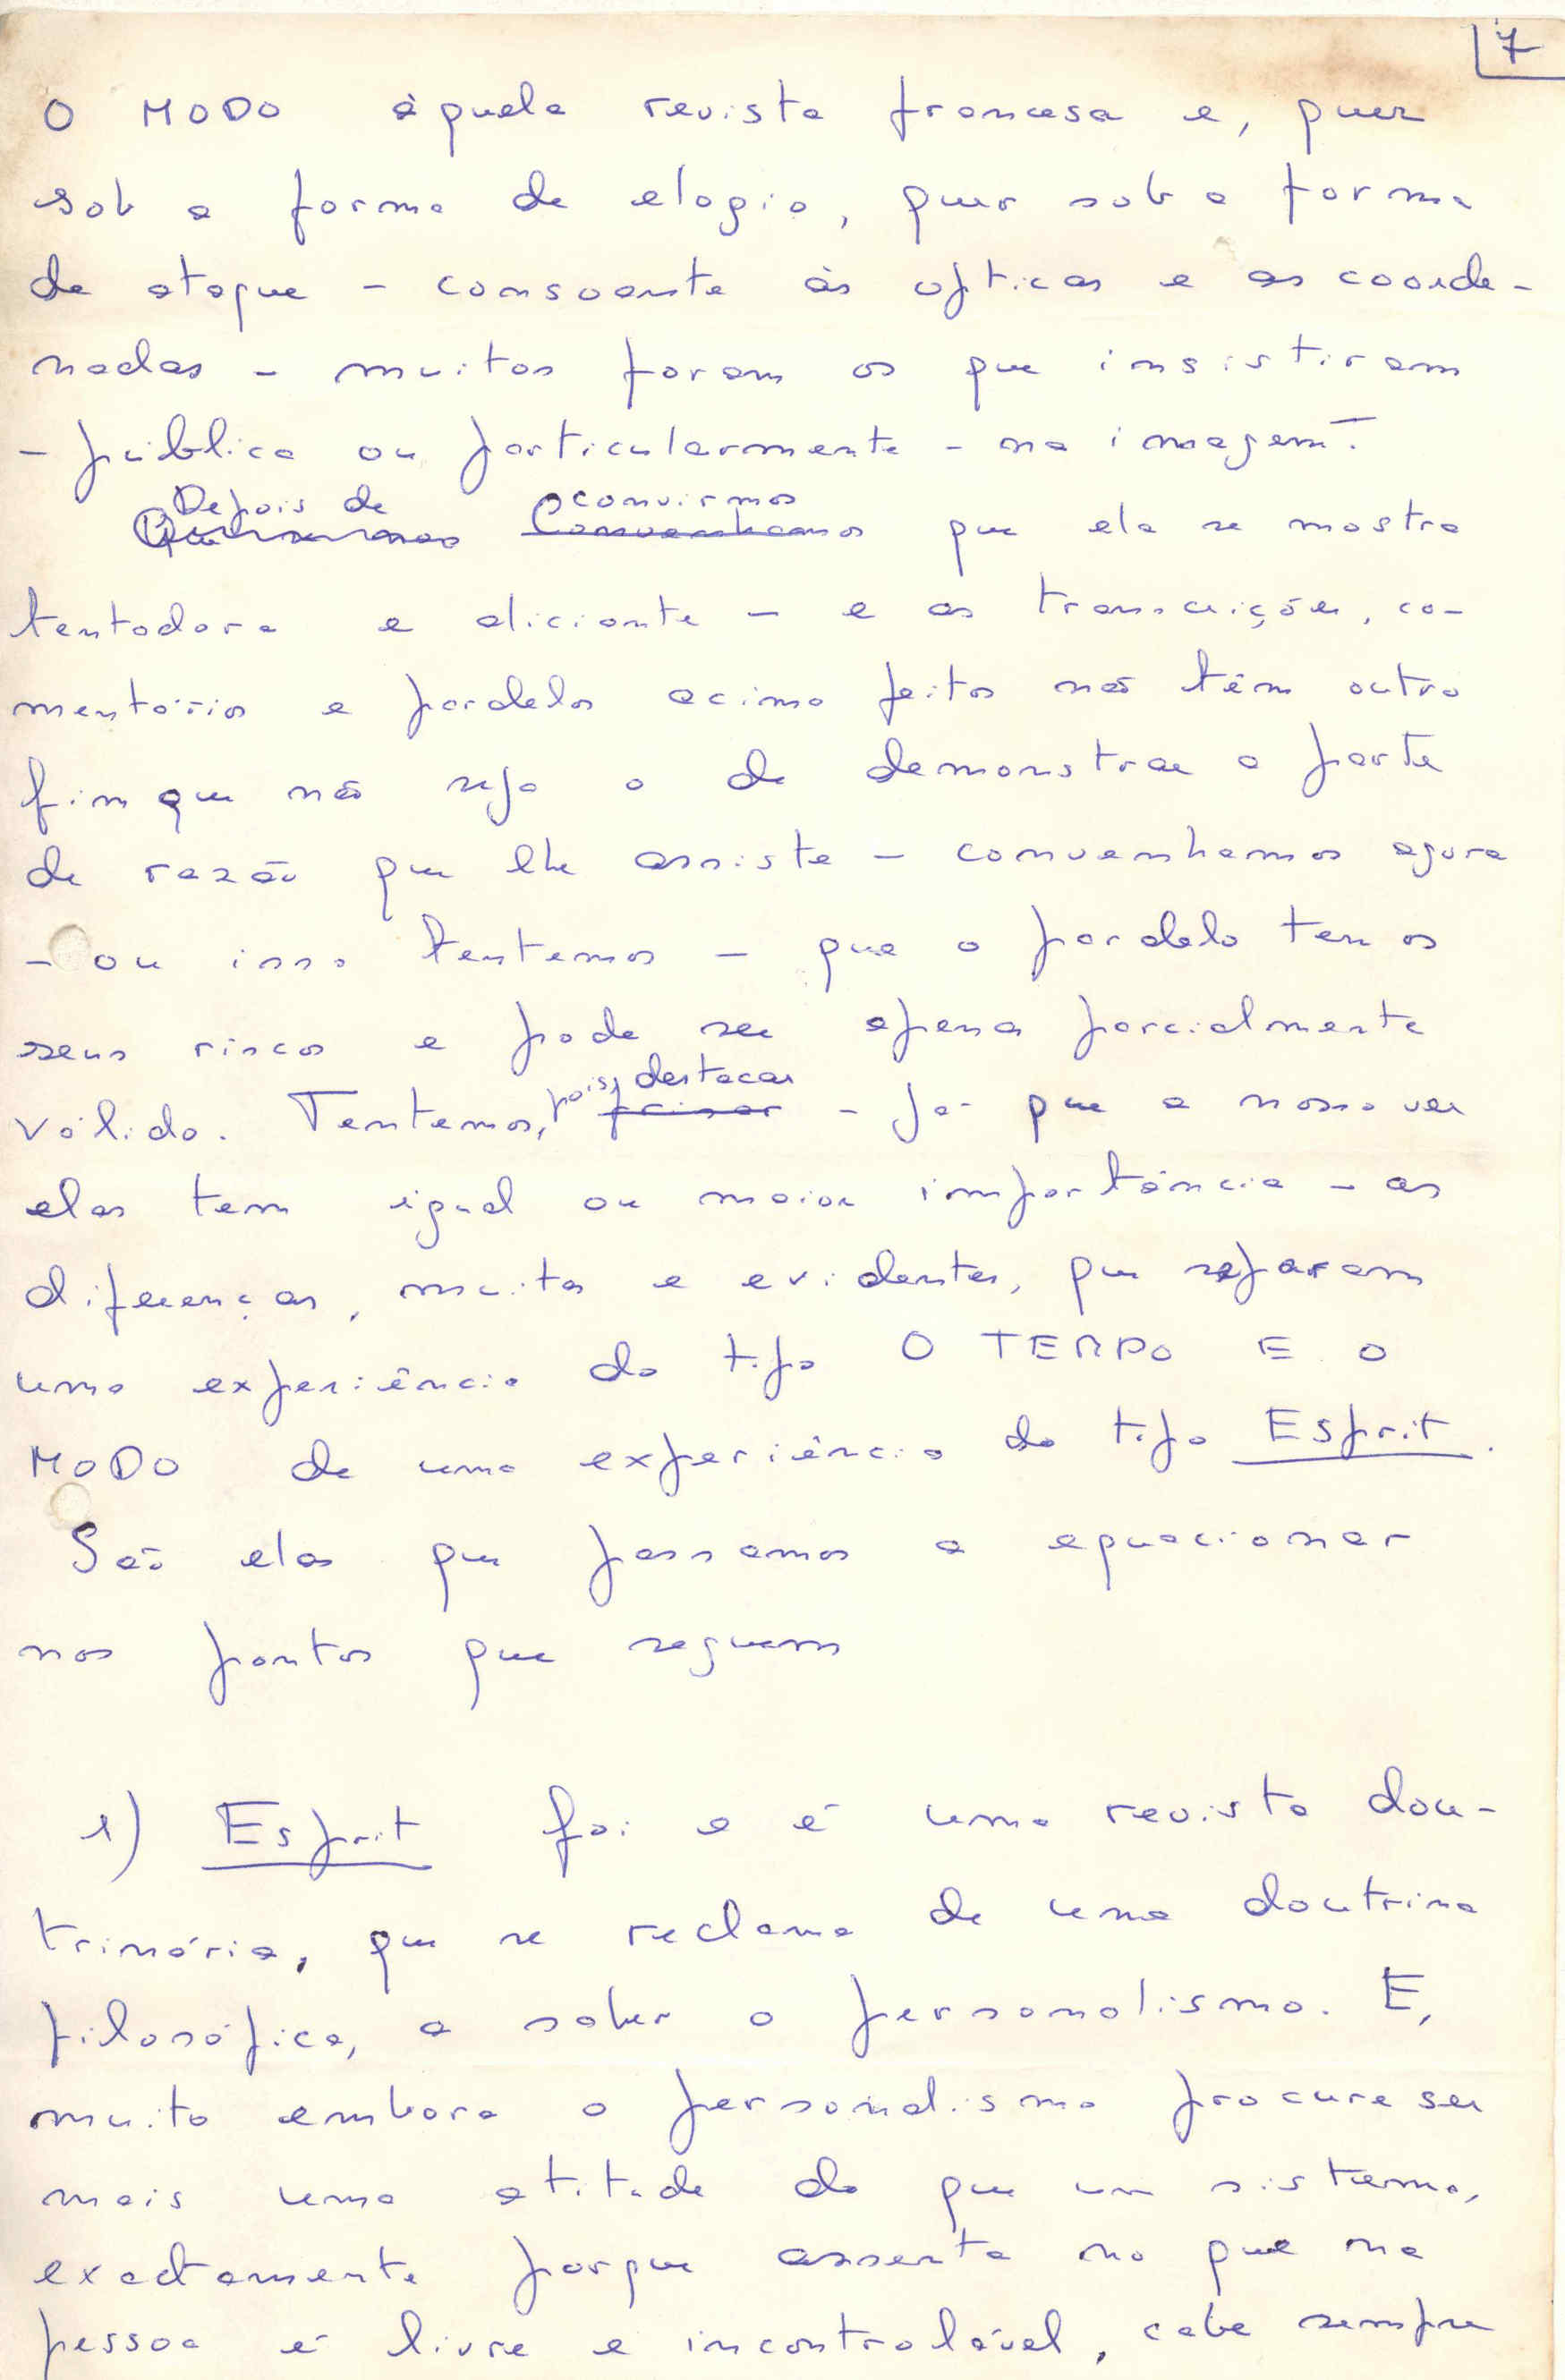 7
O MODO àquela revista francesa e, quer
sob a forma de elogio, quer sob a forma
de ataque – consoante as opticas e as coorde-
nadas – muitos foram os que insistiram
– pública ou particularmente – na imagem.
Depois de convirmos
Convenhamos que ela se mostra
tentadora e aliciante – e as transcrições, co-
mentários e paralelos acima feitos não têm outro
fim que não seja o de demonstrar a parte
de razão que lhe assiste – convenhamos agora
– ou isso tentemos – que o paralelo tem os
seus riscos e pode ser apenas parcialmente
pois, destacar
válido. Tentemos, frisar – já que a nosso ver
elas tem igual ou maior importância – as
diferenças, muitas e evidentes, que separam
uma experiência do tipo O TEMPO E O
MODO de uma experiência do tipo Esprit.
São elas que passamos a equacionar
nos pontos que seguem
1) Esprit foi e é uma revista dou-
trinária, que se reclama de uma doutrina
filosófica, a saber o personalismo. E,
muito embora o personalismo procure ser
mais uma atitude do que um sistema,
exactamente porque assenta no que na
pessoa é livre e incontrolável, cabe sempre